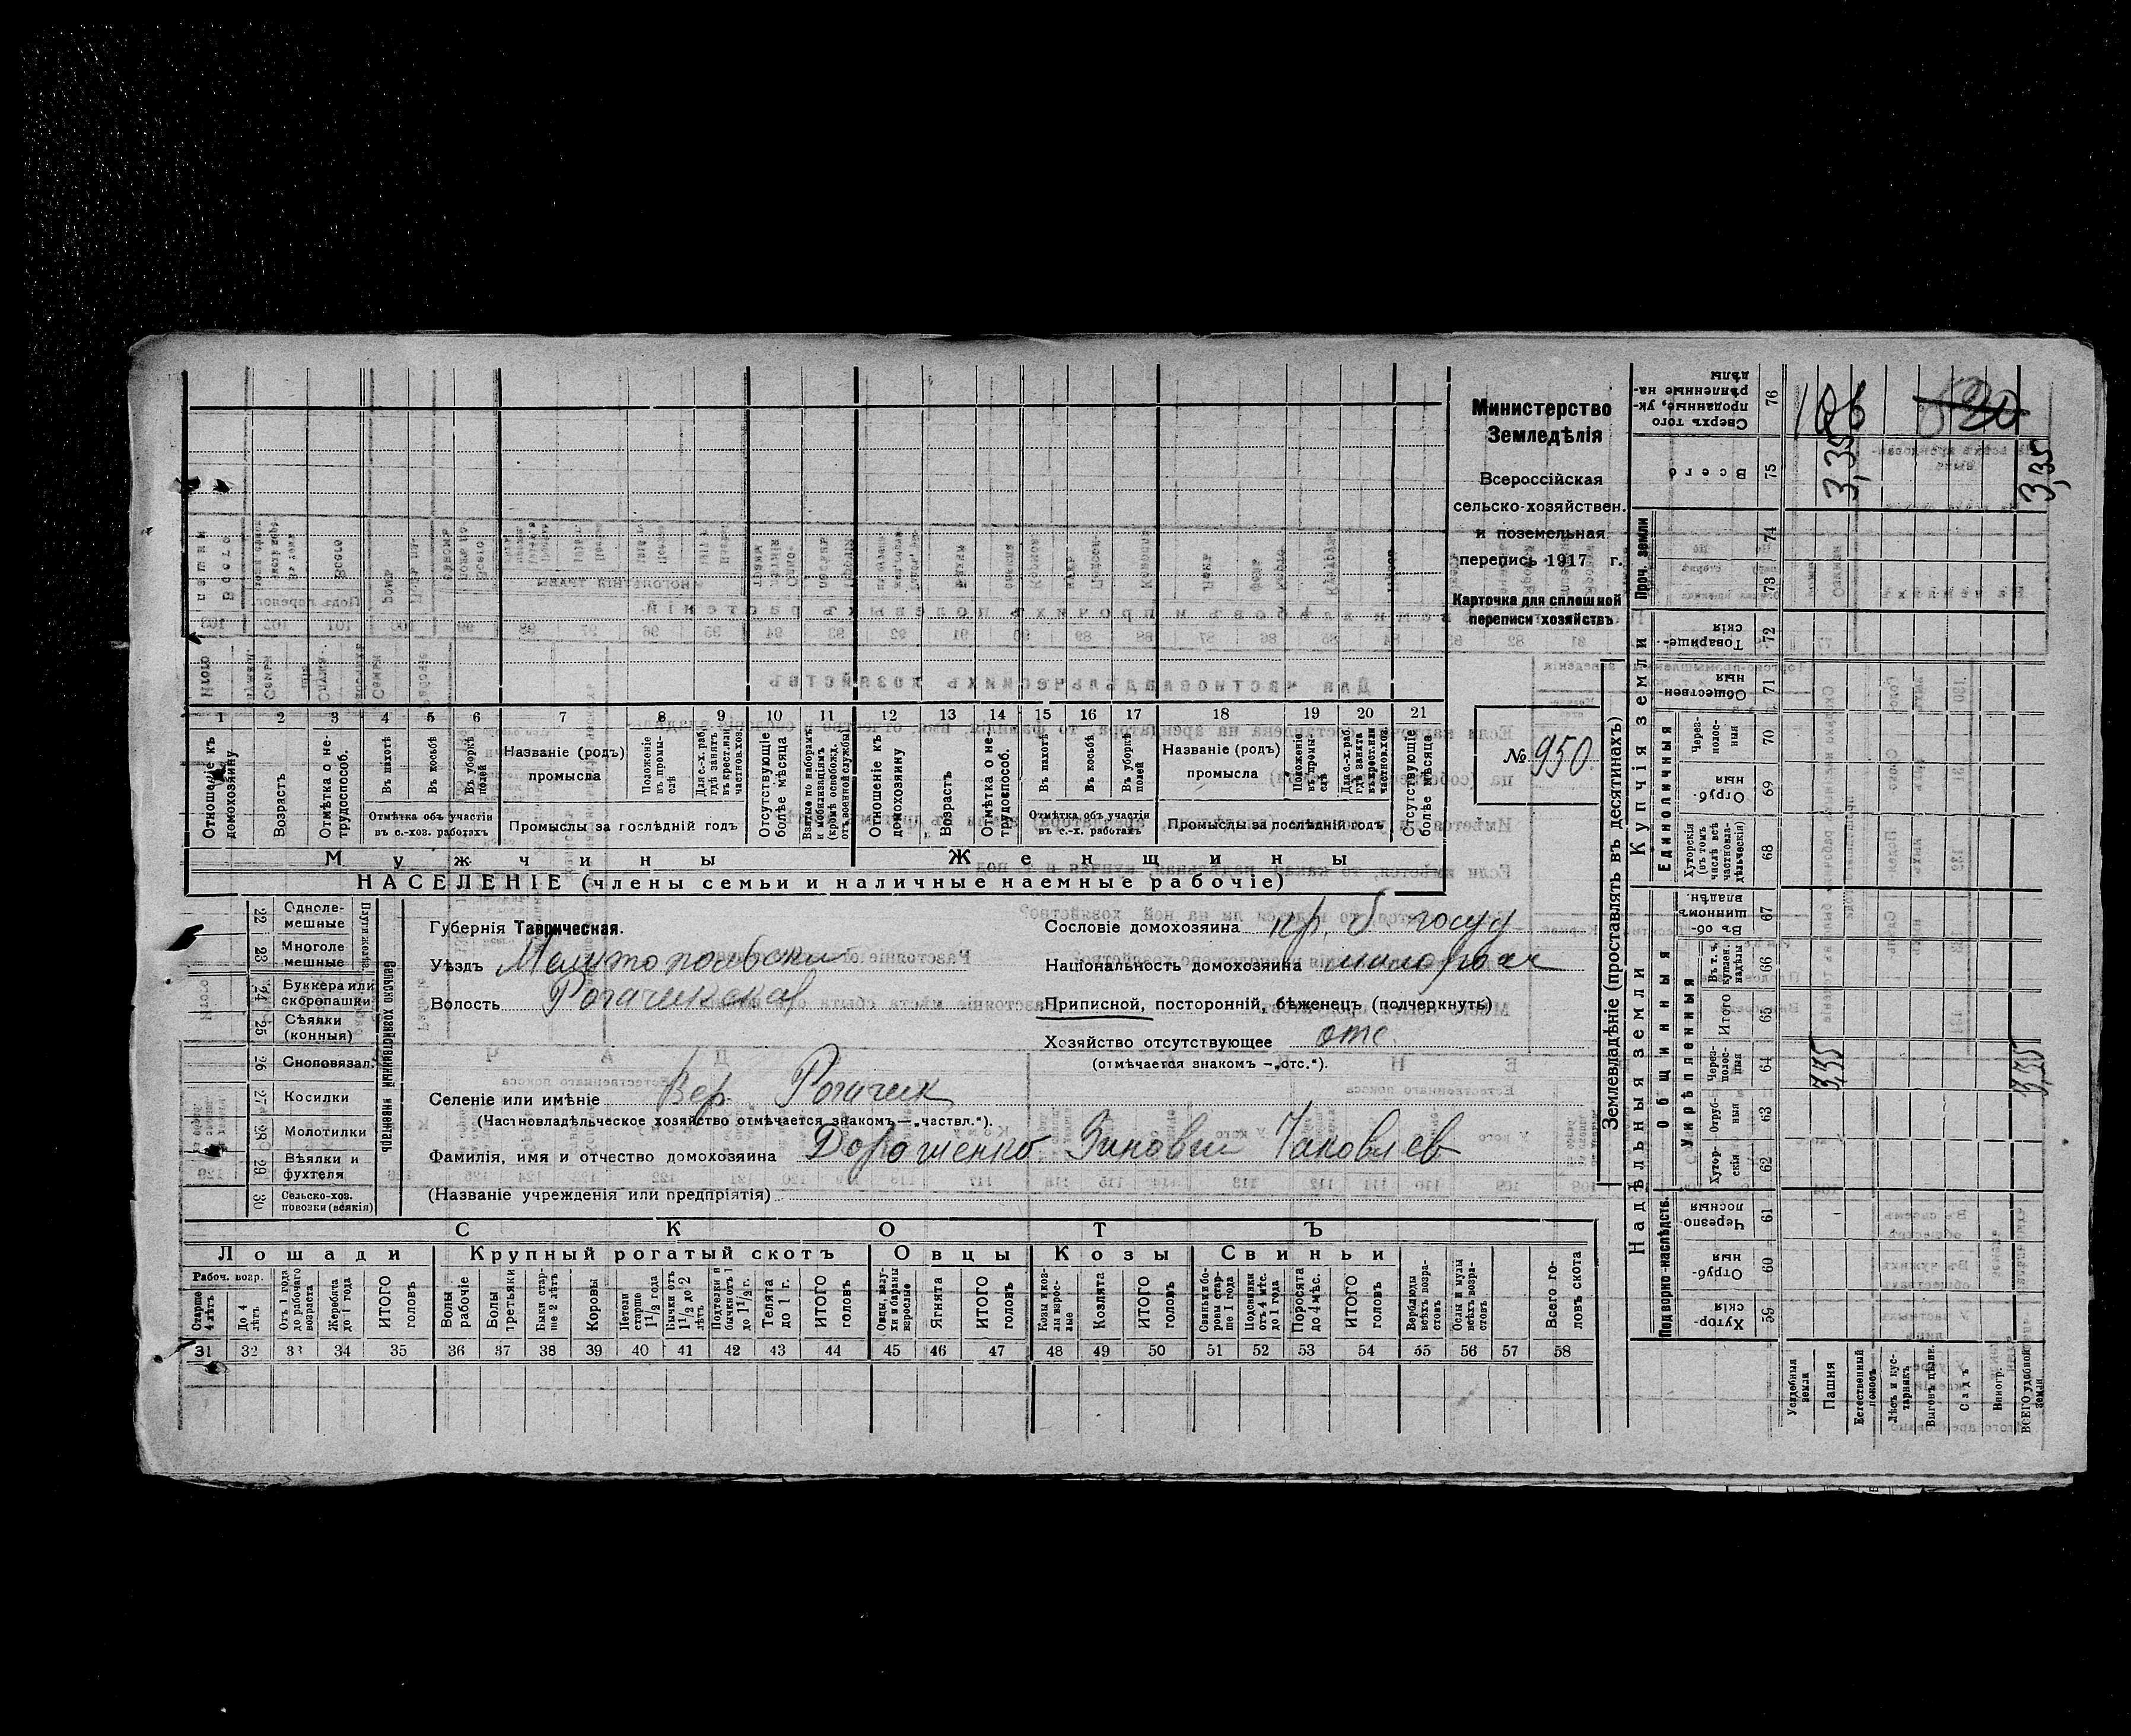 Министерство
Земледѣлія
Всероссійская
сельско-хозяйствен.
и поземельная
перепись 1917 г.
Карточка для сплошной
переписи хозяйствъ
№ 950
1 2 3 4 5 6 7 8 9 10 11 12 13 14 15 16 17 18 19 20 21
Отношеніе къ домохозяину
Возрастъ
Отмѣтка о не-трудоспособ.
Въ пахотѣ
Въ косьбѣ
Въ уборкѣ полей
Отмѣтка объ участіи
въ с.-хоз. работахъ
Названіе (родъ)
промысла
Положеніе въ промы-слѣ
Для с.-х. раб. гдѣ занятъ въ крест. или частнов. хоз.
Промыслы за послѣдній годъ
Отсутствующіе болѣе мѣсяца
Взятые по наборамъ и мобилизаціямъ (кромѣ освобожд. отъ военной службы)
Отношеніе къ домохозяину
Возрастъ
Отмѣтка о не-трудоспособ.
Въ пахотѣ
Въ косьбѣ
Въ уборкѣ полей
Отмѣтка объ участіи
въ с.-х. работахъ
Названіе (родъ)
промысла
Положеніе въ промы-слѣ
Для с.-х. раб. гдѣ занята въ крест. или частнов. хоз.
Промыслы за послѣдній годъ
Отсутствующіе болѣе мѣсяца
Мужчины
Женщины
НАСЕЛЕНІЕ (члены семьи и наличные наемные рабочіе)
Сельско хозяйственный инвентарь
22 Одноле-мешные
23 Многоле мешные
24 Буккера или скоропашки
25 Сѣялки (конныя)
26 Сноповязал.
27 Косилки
28 Молотилки
29 Вѣялки и фухтеля
30 Сельско-хоз. повозки (всякія)
Губернія Таврическая.
Уѣздъ Мелитопольский
Волость Рогачикская
Сословіе домохозяина кр. б госуд
Національность домохозяина малоросс
Приписной, посторонній, бѣженецъ (подчеркнуть)
Хозяйство отсутствующее отс.
(отмѣчается знакомъ —„отс.“).
Селеніе или имѣніе Вер. Рогачик
(Частновладѣльческое хозяйство отмѣчается знакомъ—„частвл.“).
Фамилія, имя и отчество домохозяина Дорошенко Зиновий Яковлев
(Названіе учрежденія или предпріятія)
СКОТЪ
Лошади Крупный рогатый скотъ Овцы Козы Свиньи
Рабоч. возр.
Старше 4 лѣтъ
До 4 лѣтъ
Отъ 1 года до рабочаго возраста
Жеребята до 1 года
ИТОГО головъ
Волы рабочіе
Волы третьяки
Быки стар-ше 2 лѣтъ
Коровы
Нетели старше 1½ года
Бычки отъ 1½ до 2 лѣтъ
Подтелки и бычки отъ 1 до 1½ г.
Телята до 1 г.
ИТОГО головъ
Овцы, валу-хи и бараны взрослые
Ягнята
ИТОГО головъ
Козы и коз-лы взрос-лые
Козлята
ИТОГО головъ
Свиньи и бо-ровы стар-ше 1 года
Подсвинки отъ 4 мѣс. до 1 года
Поросята до 4 мѣс.
ИТОГО головъ
Верблюды всѣхъ возра-стовъ
Ослы и мулы всѣхъ возра-стовъ
Всего го-ловъ скота
31 32 33 34 35 36 37 38 39 40 41 42 43 44 45 46 47 48 49 50 51 52 53 54 55 56 57 58
Землевладѣніе (проставлять въ десятинахъ)
Надѣльныя земли
Купчія земли
Подворно-наслѣдств.
Общинныя
Укрѣпленныя
Единоличныя
Проч. земли
Сверхъ того проданные, ук-рѣпленные на-дѣлы 76
Всего 75
74
73
Товарище-скія 72
Обществен-ныя 71
Через-полос-ныя 70
Отруб-ныя 69
Хуторскія (въ томъ числѣ всѣ частновла-дѣльческія) 68
Въ об-щинномъ владѣн. 67
Въ т. ч. куплен. надѣлы 66
Итого 65
Через-полос-ныя 64
Отруб-ныя 63
Хутор-скія 62
Черезпо-лосныя 61
Отруб-ныя 60
Хутор-скія 59
3,35
3,35
3,35
3,35
Усадебная земля
Пашня
Естественный покосъ
Лѣсъ и кус-тарникъ
Садъ
Виногр.
ВСЕГО удобной земли